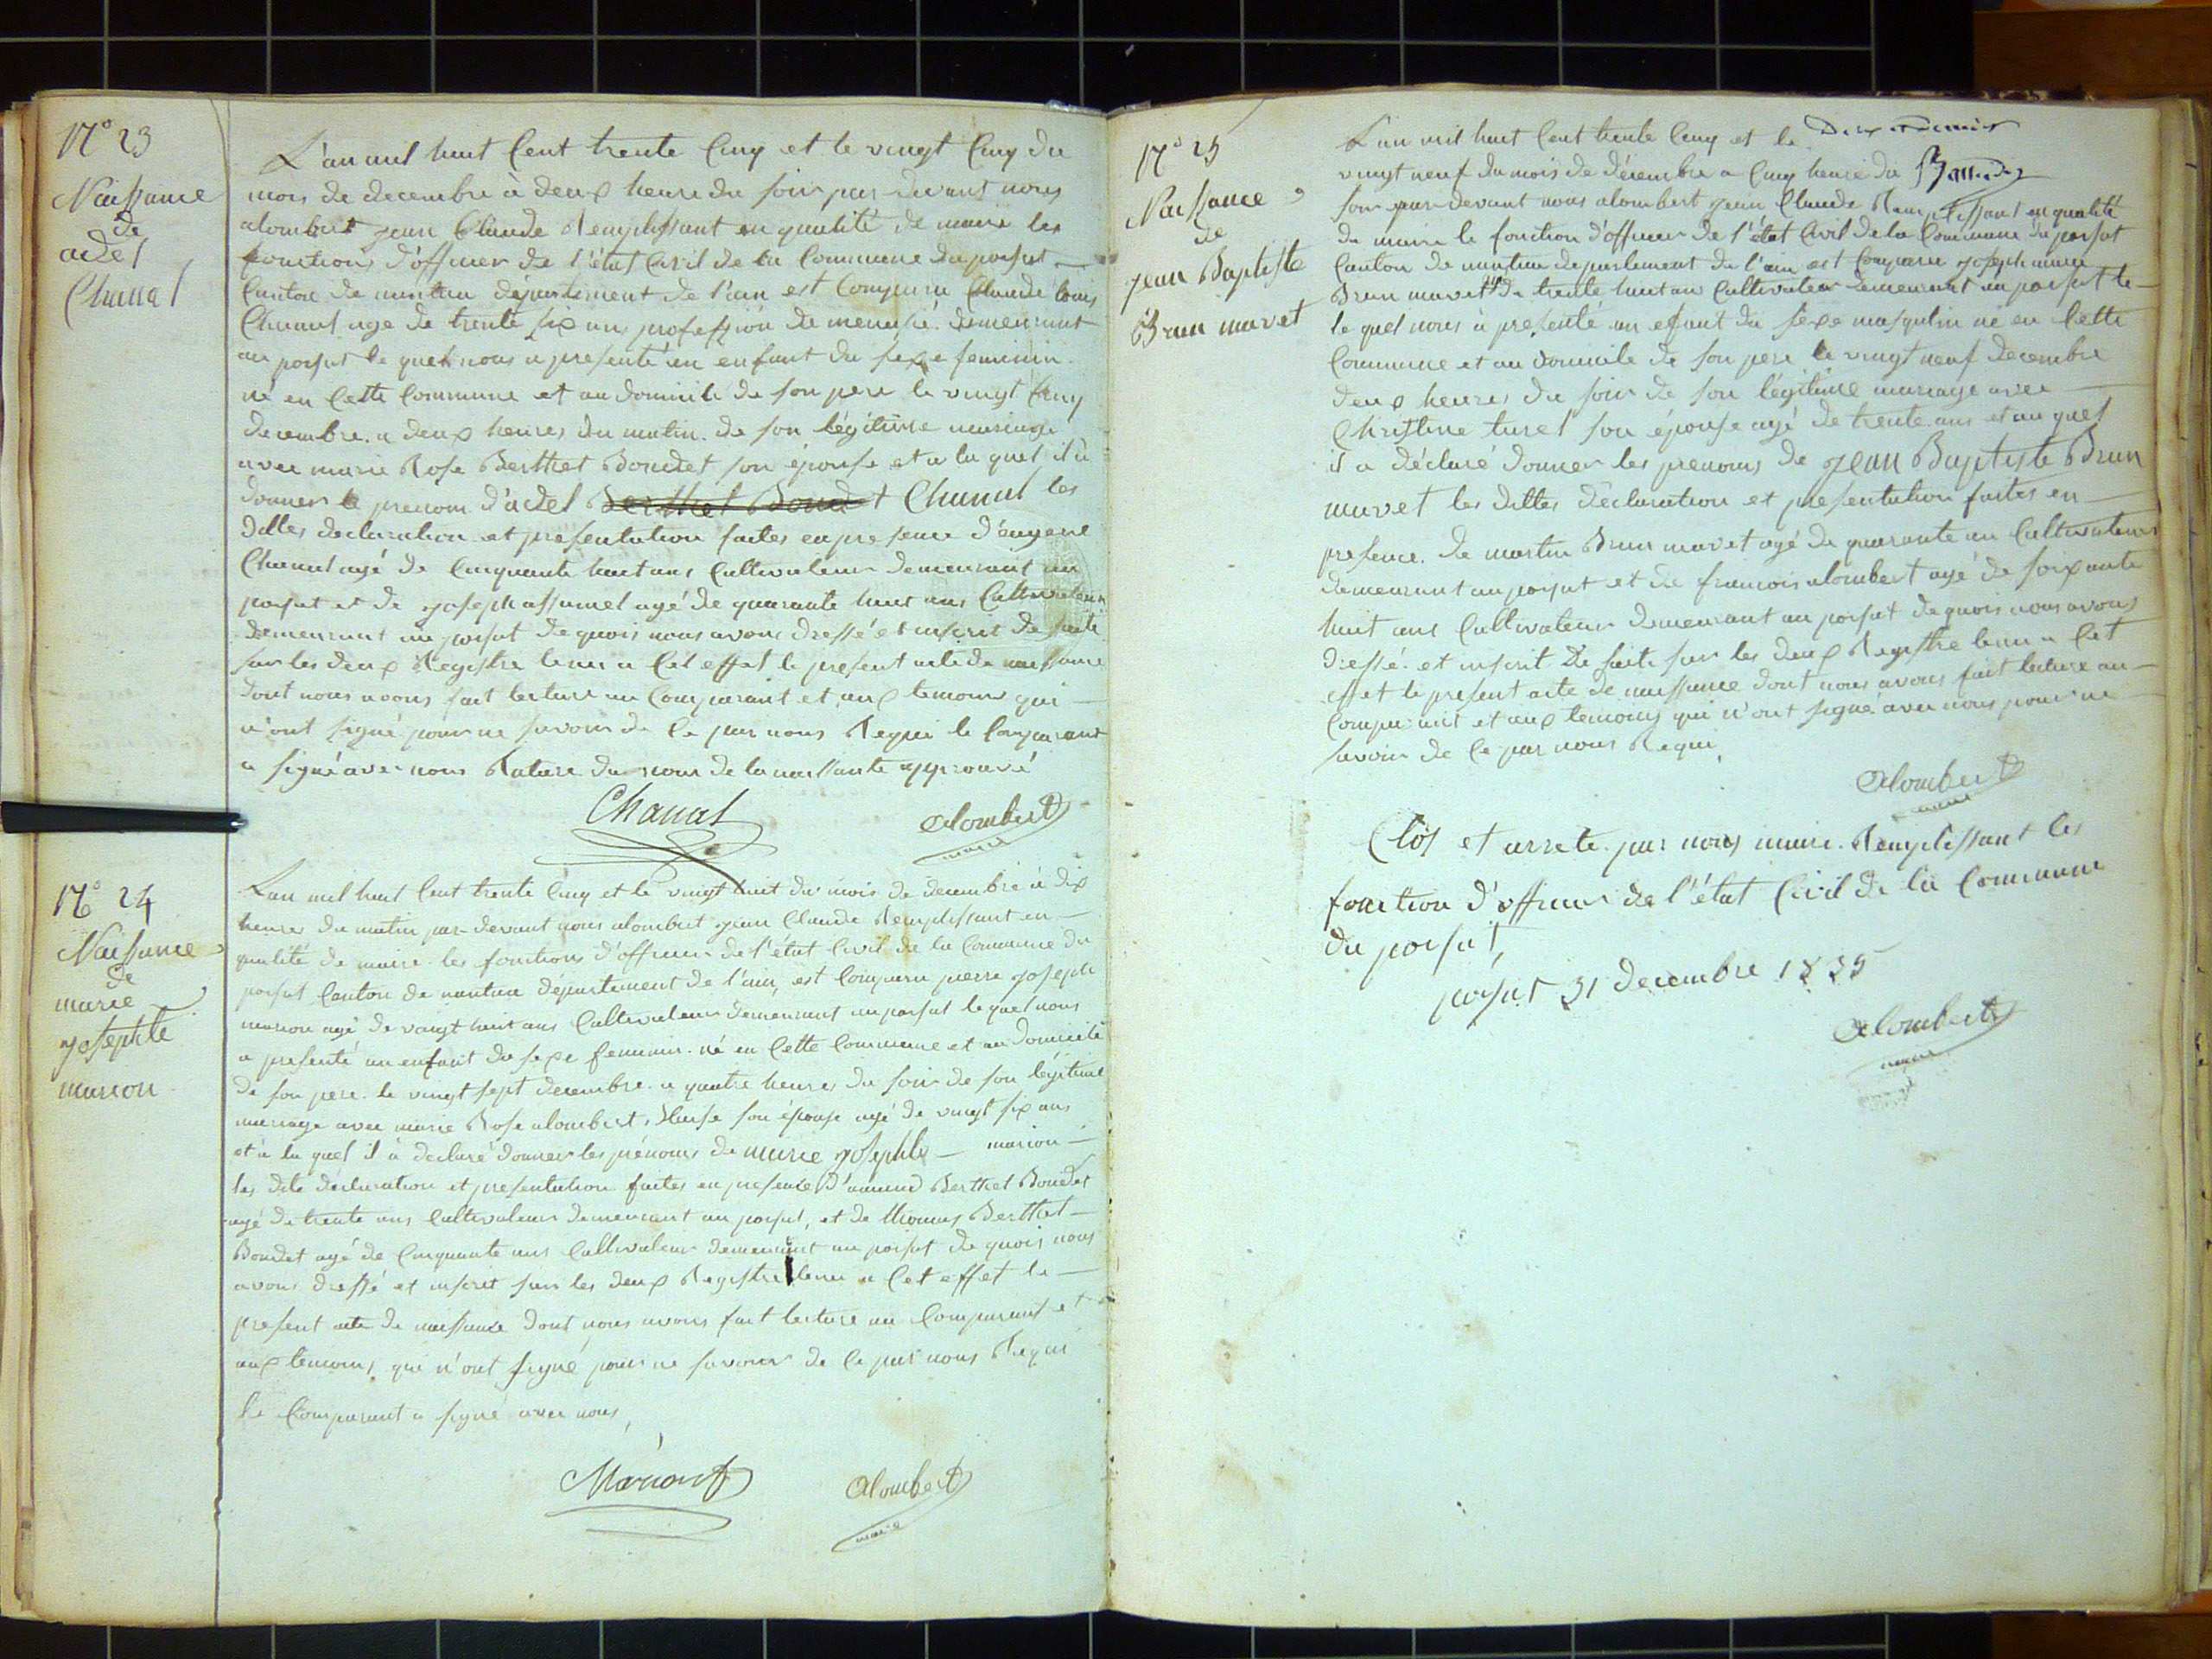 N° 23
Naissance
de
adel
Chanal
L'an mil huit Cent trente Cinq et le vingt Cinq du
mois de decembre à deux heure du soir par-devant nous
alombert jean Claude Remplissant en qualité de maire les
fonctions d'officier de l'état Civil de la Commune du poisat
Canton de nantua département de l'ain est Comparu Claude louis
Chanal age de trente six ans profession de menusié demeurant
au poisat le quel nous a presenté un enfant du sexe feminin
né en Cette Commune et au domicile de son pere le vingt Cinq
decembre a deux heures du matin de son légitime mariage
avec marie Rose Berthet Bondet son épouse et a la quel il à
donner le prenom d'adel Berthet Bondet Chanal les
dittes declaration et presentation faites en presence d'eugene
Chanal agé de Cinquante huit ans Cultivateur demeurant au
poisat et de joseph assumel agé de quarante huit ans Cultivateur
demeurant au poisat de quois nous avons dressé et inscrit de suite
sur les deux Registre tenu a Cet effet le present acte de naissance
dont nous avons fait lecture au Comparant et aux temoins qui
n'ont signé pour ne savoir de Ce par nous Requi le Comparant
a signé avec nous Rature du nom de la naissante approuvé
Chanal
alombert
maire
N° 24
Naissance
de
marie
josephte
marion
L'an mil huit Cent trente Cinq et le vingt huit du mois de decembre à dix
heures du matin par-devant nous alombert jean Claude Remplissant en
qualité de maire les fonctions d'officier de l'état Civil de la Commune du
poisat Canton de nantua département de l'ain, est Comparu pierre joseph
marion agé de vaingt huit ans Cultivateur demeurant au poisat le quel nous
a presenté un enfant du sexe feminin né en Cette Commune et au domicile
de son pere le vingt sept decembre a quatre heures du soir de son légitime
mariage avec marie Rose alombert son épouse agé de vingt six ans
et à la quel il à déclaré donner les prénoms de marie josephte marion
les dite déclaration et presentation faites en presence d'amand Berthet Bondet
agé de trente ans Cultivateur demeurant au poisat, et de thomas Berthet
Bondet agé de Cinquante ans Cultivateur demeurant au poisat de quois nous
avons dressé et inscrit sur les deux Registre tenu a Cet effet le
present acte de naissance dont nous avons fait lecture au Comparant et
aux temoins, qui n'ont signé pour ne savoir de Ce par nous Requi
le Comparant a signé avec nous,
Marion
alombert
maire
N° 25
Naissance
de
jean Baptiste
Brun mavet
L'an mil huit Cent trente Cinq et le
vingt neuf du mois de décembre a Cinq heure du
soir par-devant nous alombert jean Claude Remplissant en qualité
de maire le fonction d'officier de l'état Civil de la Commune du poisat
Canton de nantua departement de l'ain est Comparu joseph marie
Brun mavet agé de trente huit an Cultivateur demeurant au poisat le
le quel nous à presenté un efant du sexe masqulin né en Cette
Commune et au domicile de son pere le vingt neuf decembre
deux heures du soir de son légitime mariage avec
Christine turel son épouse agé de trente ans et au quel
il a déclaré donner les prenoms de jean Baptiste Brun
mavet les dittes déclaration et presentation faites en
presence de martin Brun mavet agé de quarante an Cultivateur
demeurant au poisat et de francois alombert agé de soixante
huit ans Cultivateur demeurant au poisat de quois nous avons
dressé et inscrit de suite sur les deux Registre tenu a Cet
effet le present acte de naissance dont nous avons fait lecture au
Comparant et aux temoins qui n'ont signé avec nous pour ne
savoir de Ce par nous Requi,
alombert
maire
Clos et arrete par nous maire Remplissant les
fonction d'officier de l'état Civil de la Commune
du poisat,
poisat 31 decembre 1835
alombert
maire